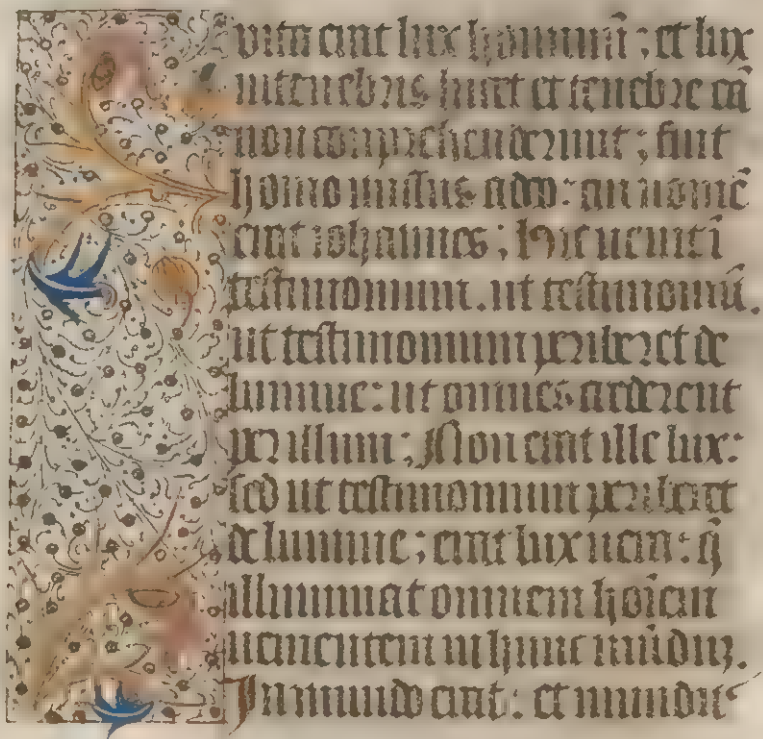 vita erat lux hominū : et lux
intenebris lucet et tenebre eā
non conprehenderunt ; fuit
homo missus adeo : cui nomē
erat iohannes ; hic uenit ī
testimonium . ut testimoniū .
ut testimonium perhiberet de
lumine : ut omnes crederent
per illum ; Non erat ille lux :
sed ut testimonium perhiberet
de lumine ; erat lux uera : q̄
illuminat omnem hoīem
uenientem in hunc mūduʒ .
In mundo erat : et mundus